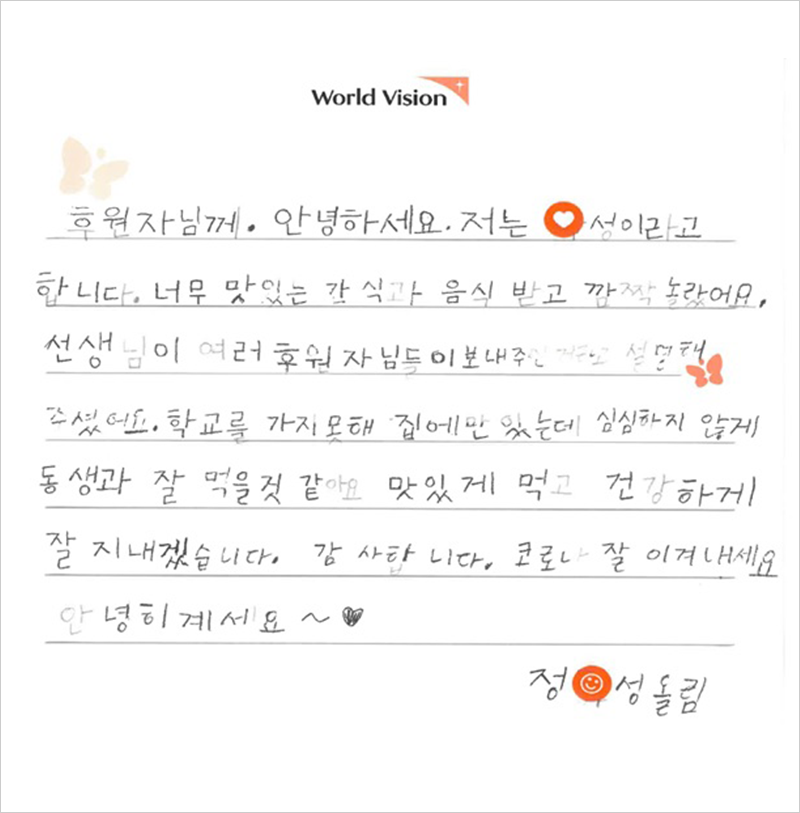 World Vision
후원자님께. 안녕하세요. 저는 성이라고
합니다. 너무 맛있는 간식과 음식 받고 깜짝 놀랐어요.
선생님이 여러 후원자님들이 보내주신 거라고 설명해
주셨어요. 학교를 가지못해 집에만 있는데 심심하지 않게
동생과 잘 먹을것 같아요 맛있게 먹고 건강하게
잘 지내겠습니다. 감사합니다. 코로나 잘 이겨내세요
안녕히계세요 ~ ♥
정 성올림